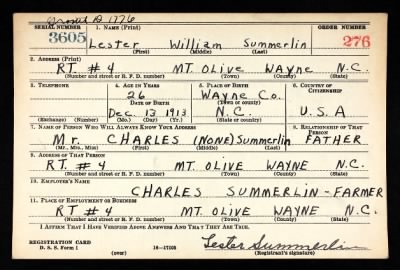 SERIAL NUMBER 1. NAME (Print) ORDER NUMBER
3605 Lester William Summerlin 276
(First) (Middle) (Last)
2. ADDRESS (Print)
RT # 4 MT. OLIVE WAYNE N.C.
(Number and street or R. F. D. number) (Town) (County) (State)
3. TELEPHONE 4. AGE IN YEARS 5. PLACE OF BIRTH 6. COUNTRY OF CITIZENSHIP
26 Wayne Co.
DATE OF BIRTH (Town or county)
Dec. 13 1913 N.C. U.S.A
(Exchange) (Number) (Mo.) (Day) (Yr.) (State or country)
7. NAME OF PERSON WHO WILL ALWAYS KNOW YOUR ADDRESS 8. RELATIONSHIP OF THAT PERSON
Mr. CHARLES (NONE) Summerlin FATHER
(Mr., Mrs., Miss) (First) (Middle) (Last)
9. ADDRESS OF THAT PERSON
RT # 4 MT. OLIVE WAYNE N.C.
(Number and street or R. F. D. number) (Town) (County) (State)
10. EMPLOYER'S NAME
CHARLES SUMMERLIN - FARMER
11. PLACE OF EMPLOYMENT OR BUSINESS
RT # 4 MT OLIVE WAYNE N.C.
(Number and street or R. F. D. number) (Town) (County) (State)
I AFFIRM THAT I HAVE VERIFIED ABOVE ANSWERS AND THAT THEY ARE TRUE.
REGISTRATION CARD
D. S. S. Form 1 (over) 16-17105 Lester Summerlin
(Registrant's signature)